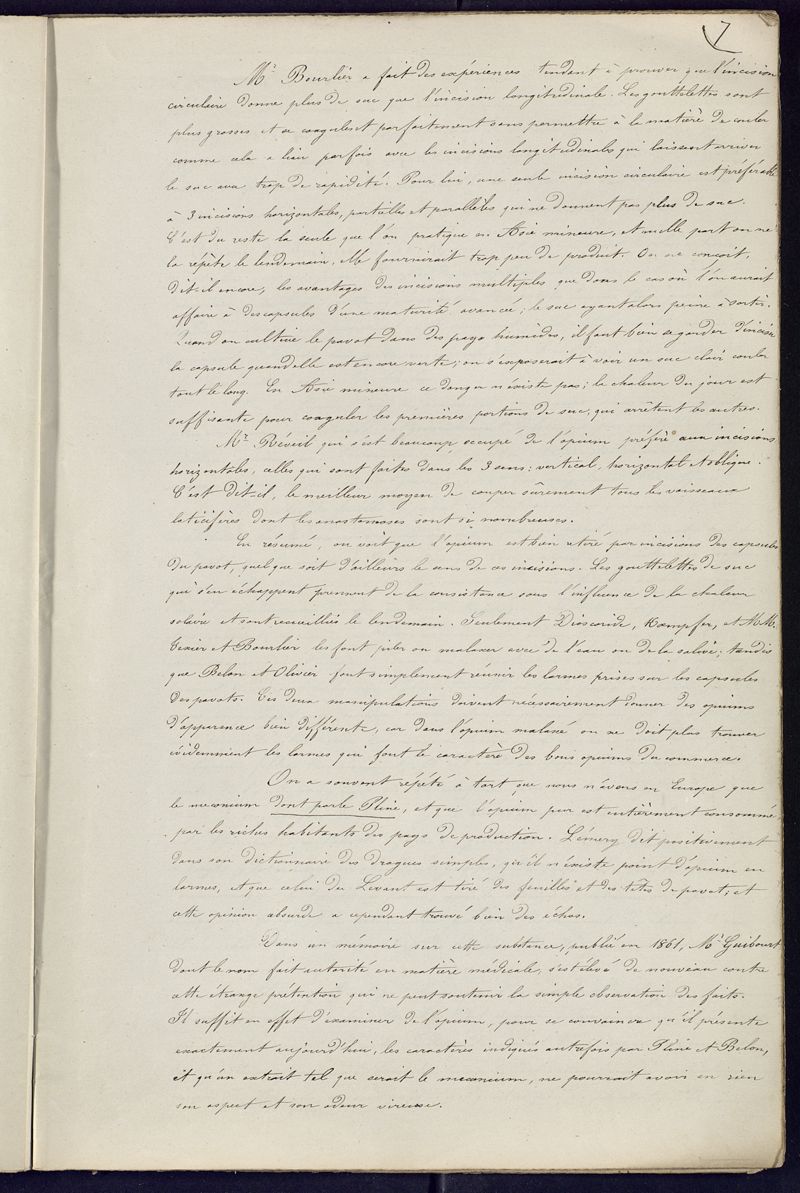 7
Mr Bourlier a fait des expériences tendant à prouver que l'incision
circulaire donne plus de suc que l'incision longitudinale. Les gouttelettes sont
plus grosses et se coagulent parfaitement sans permettre à la matière de couler
comme cela a lieu parfois avec les incisions longitudinales qui laissent arriver
le suc avec trop de rapidité. Pour lui, une seule incision circulaire est préférable
à 3 incisions horizontales, partielles et parallèles qui ne donnent pas plus de suc.
C'est du reste la seule que l'on pratique en Asie mineure, et nulle part on ne
la répète le lendemain. Elle fournirait trop peu de produit. On ne conçoit,
dit-il encore, les avantages des incisions multiples que dans le cas où l'on aurait
affaire à des capsules d'une maturité avancée; le suc ayant alors peine à sortir.
Quand on cultive le pavot dans des pays humides, il faut bien se garder d'inciser
la capsule quand elle est encore verte; on s'exposerait à voir un suc clair couler
tout le long. En Asie mineure ce danger n'existe pas; la chaleur du jour est
suffisante pour coaguler les premières portions de suc, qui arrêtent les autres.
Mr Réveil qui s'est beaucoup occupé de l'opium préfère aux incisions
horizontales, celles qui sont faites dans les 3 sens: vertical, horizontal et oblique.
C'est dit-il, le meilleur moyen de couper sûrement tous les vaisseaux
laticifères dont les anastomoses sont si nombreuses.
En résumé, on voit que l'opium est bien retiré par incisions des capsules
du pavot, quelque soit d'ailleurs le sens de ces incisions. Les gouttelettes de suc
qui s'en échappent prennent de la consistance sous l'influence de la chaleur
solaire et sont recueillies le lendemain. Seulement Dioscoride, Kampfer, et MM.
Texier et Bourlier les font piler ou malaxer avec de l'eau ou de la salive; tandis
que Belon et Olivier font simplement réunir les larmes prises sur les capsules
des pavots. Ces deux manipulations doivent nécessairement donner des opiums
d'apparence bien différente, car dans l'opium malaxé on ne doit plus trouver
évidemment les larmes qui font le caractère des bons opiums du commerce.
On a souvent répété à tort que nous n'avons en Europe que
le meconium dont parle Pline, et que l'opium pur est entièrement consommé
par les riches habitants des pays de production. Lémery dit positivement
dans son dictionnaire des drogues simples, qu'il n'existe point d'opium en
larmes, et que celui du Levant est tiré des feuilles et des têtes de pavot; et
cette opinion absurde a cependant trouvé bien des échos.
Dans un mémoire sur cette substance, publié en 1861, Mr Guibourt
dont le nom fait autorité en matière médicale, s'est élevé de nouveau contre
cette étrange prétention qui ne peut soutenir la simple observation des faits.
Il suffit en effet d'examiner de l'opium, pour se convaincre qu'il présente
exactement aujourd'hui, les caractères indiqués autrefois par Pline et Belon,
et qu'un extrait tel que serait le meconium, ne pourrait avoir en rien
son aspect et son odeur vireuse.